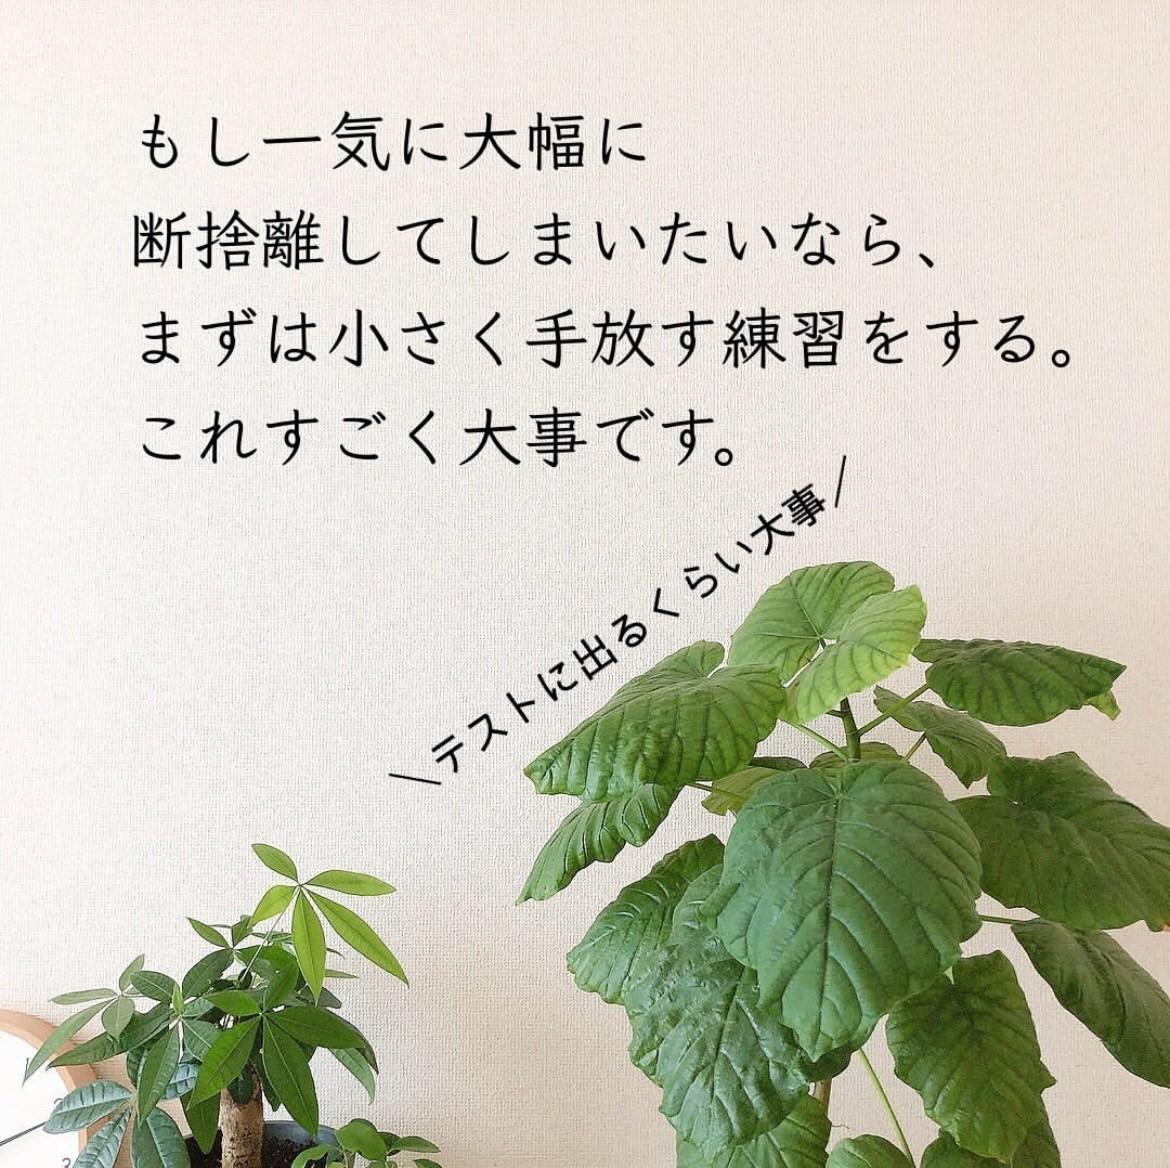 もし一気に大幅に
断捨離してしまいたいなら、
まずは小さく手放す練習をする。
これすごく大事です。
\テストに出るくらい大事/
3